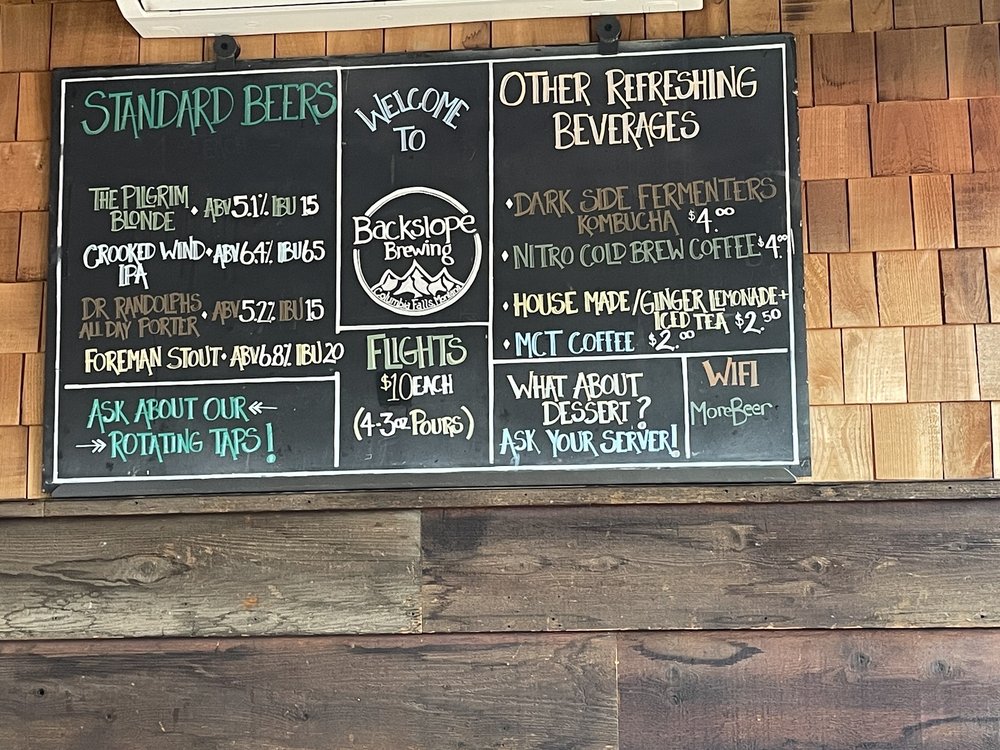 STANDARD BEERS
THE PILGRIM
BLONDE • ABV 5.1% IBU 15
CROOKED WIND • ABV 6.4% IBU 65
IPA
DR RANDOLPHS
ALL DAY PORTER • ABV 5.2% IBU 15
FOREMAN STOUT • ABV 6.8% IBU 20
ASK ABOUT OUR
ROTATING TAPS!
WELCOME
TO
Backslope
Brewing
Columbia Falls, Montana
FLIGHTS
$10 EACH
(4-3oz POURS)
OTHER REFRESHING
BEVERAGES
• DARK SIDE FERMENTERS
KOMBUCHA $4.00
• NITRO COLD BREW COFFEE $4.00
• HOUSE MADE/GINGER LEMONADE +
ICED TEA $2.50
• MCT COFFEE $2.00
WHAT ABOUT
DESSERT?
ASK YOUR SERVER!
WIFI
MoreBeer